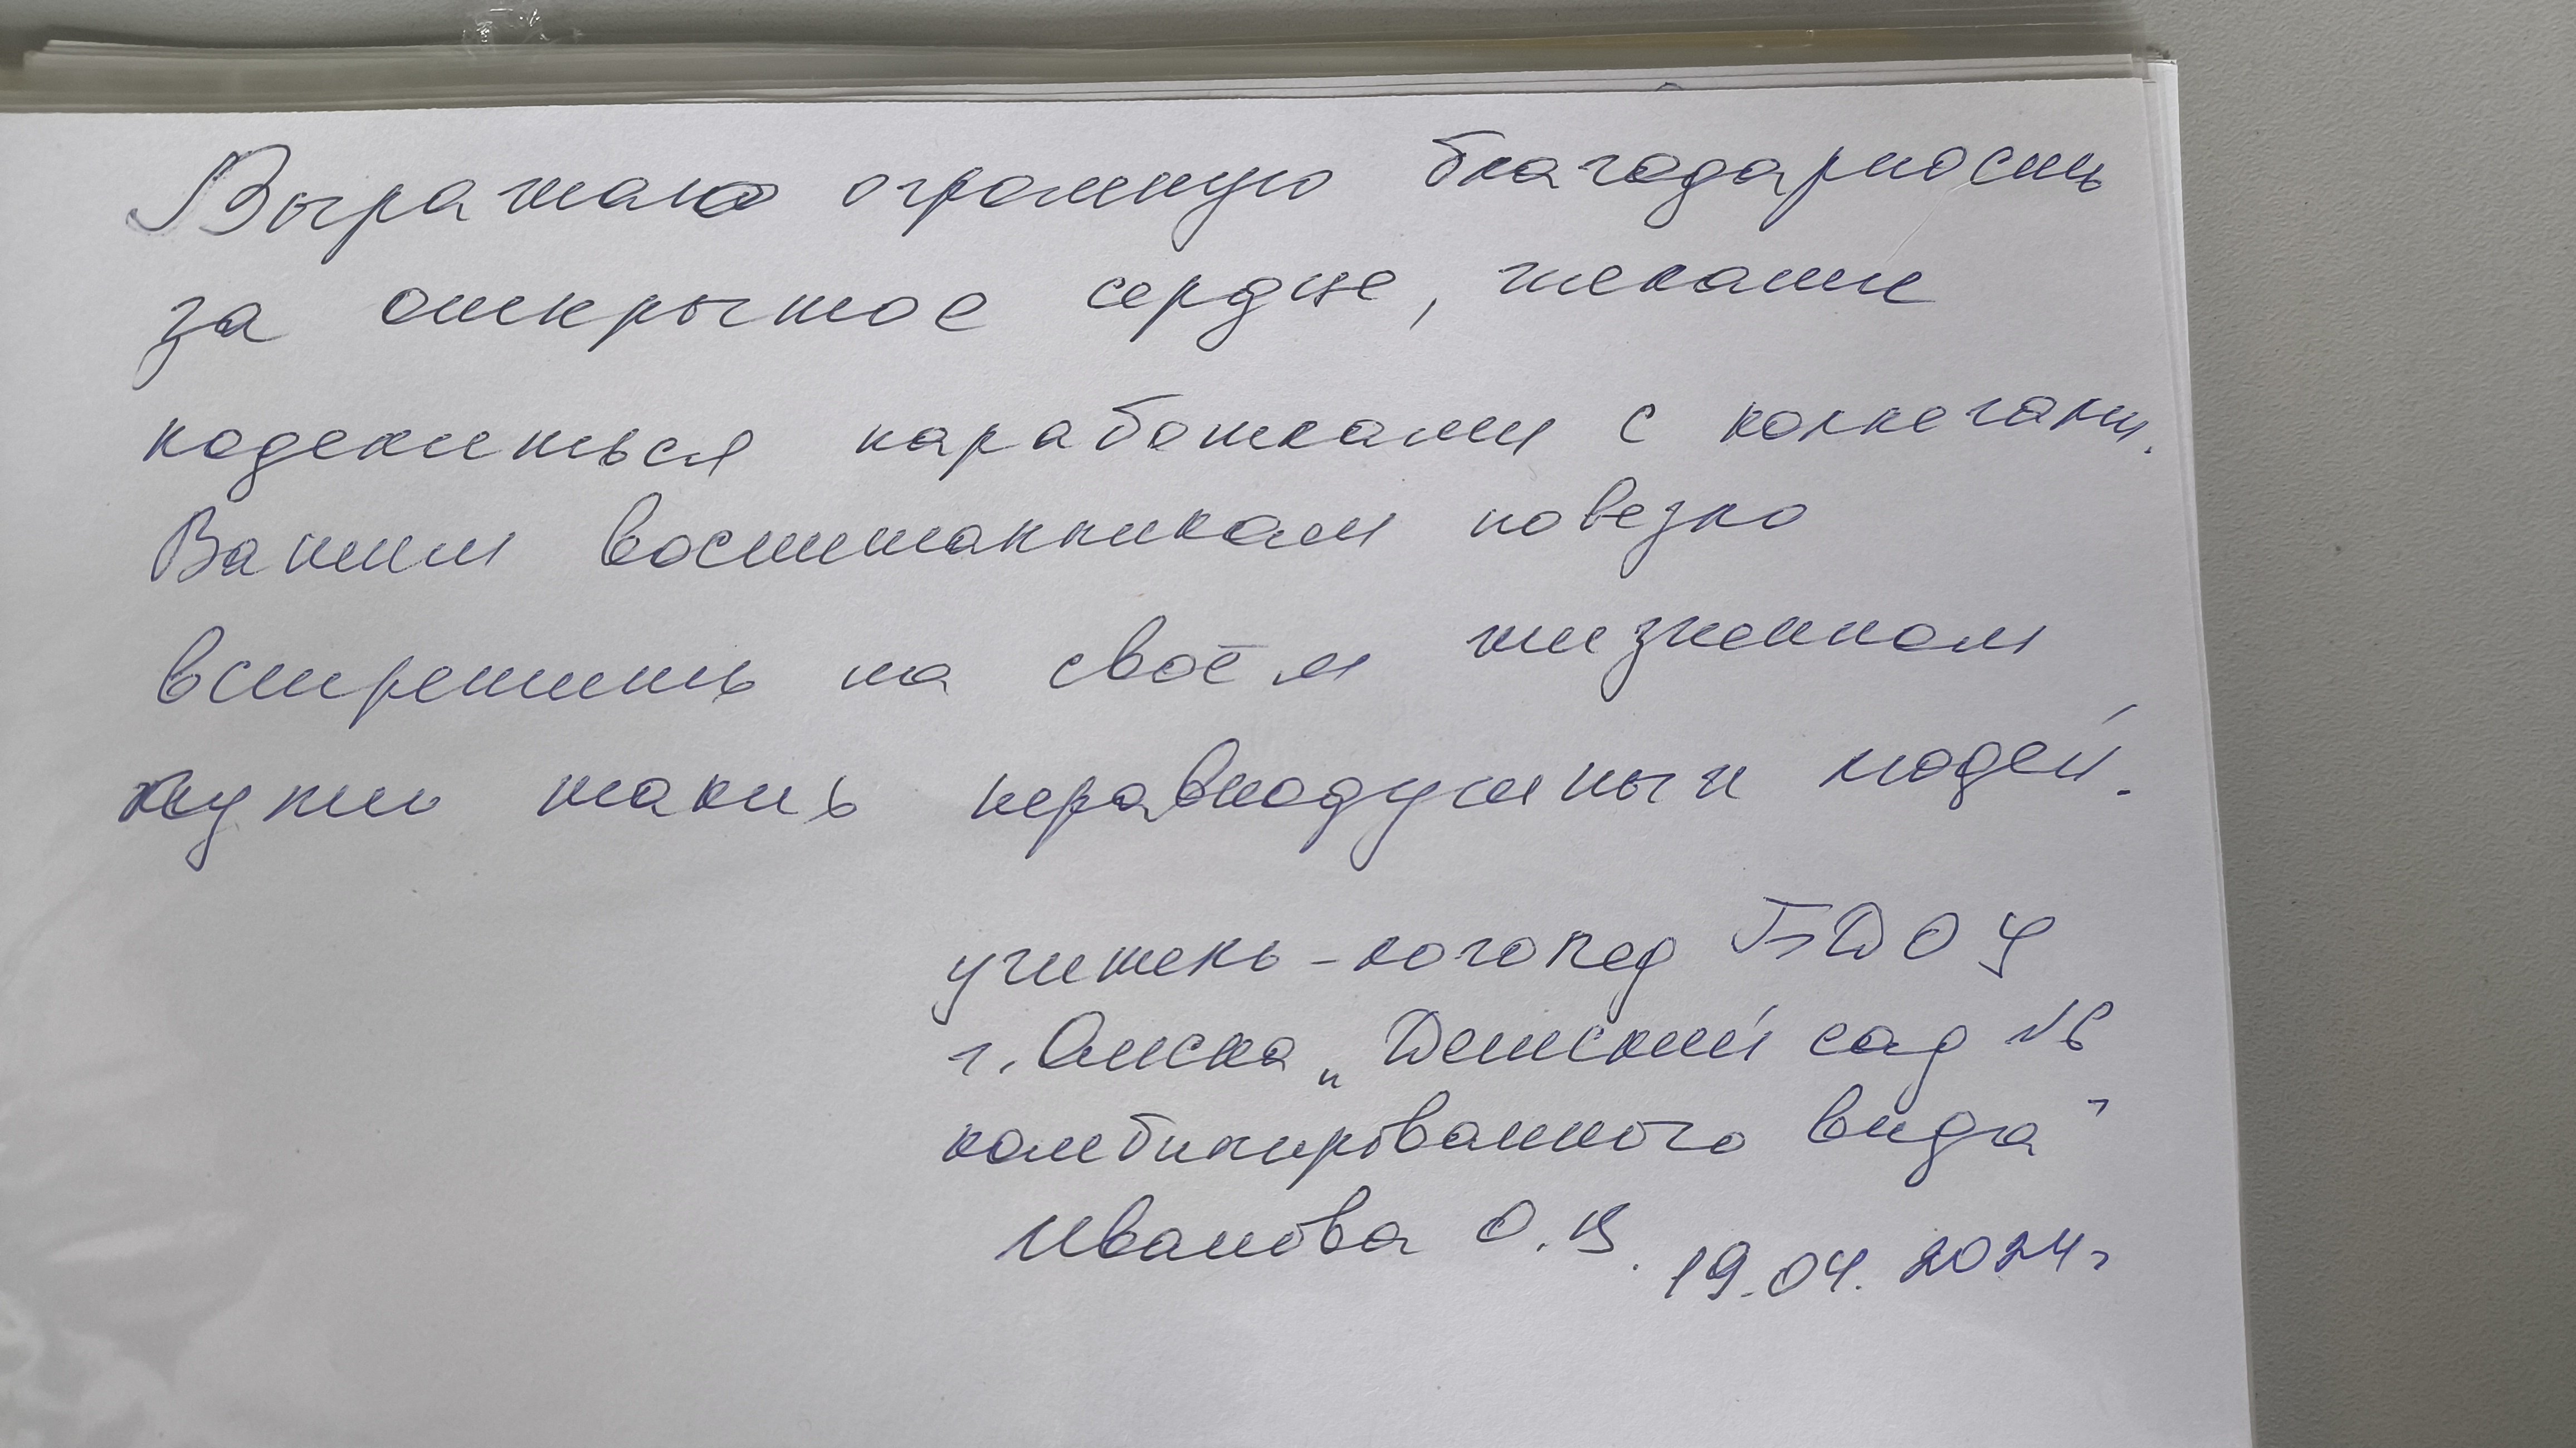 Выражаю огромную благодарность
за открытое сердце, желание
поделиться наработками с коллегами.
Вашим воспитанникам повезло
встретить на своём жизненном
пути таких неравнодушных людей.
учитель-логопед БДОУ
г. Омска „Детский сад №6
комбинированного вида"
Иванова О.В. 19.04.2024г